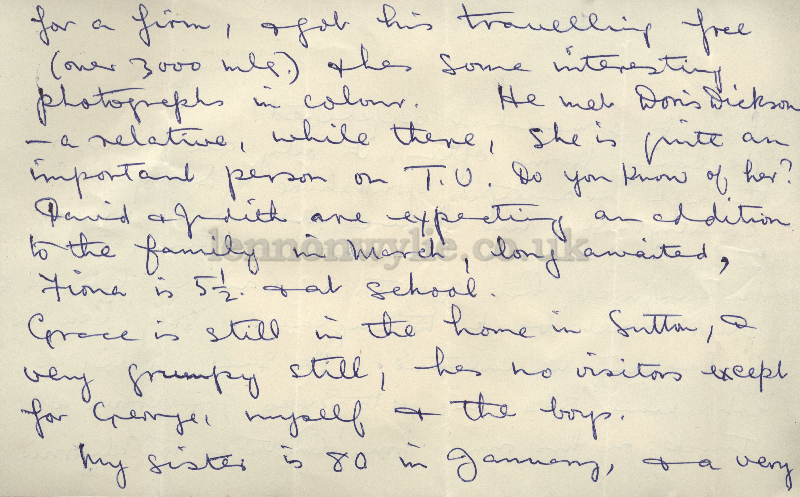 for a firm, & got his travelling free
(over 3000 mls.) & has some interesting
photographs in colour. He met Doris Dickson
– a relative, while there, she is quite an
important person on T.V. Do you know of her?
David & Judith are expecting an addition
to the family in March, long awaited,
Fiona is 5½. & at school.
Grace is still in the home in Sutton, &
very grumpy still, has no visitors except
for George, myself & the boys.
My sister is 80 in January, & a very
lennonwylie.co.uk